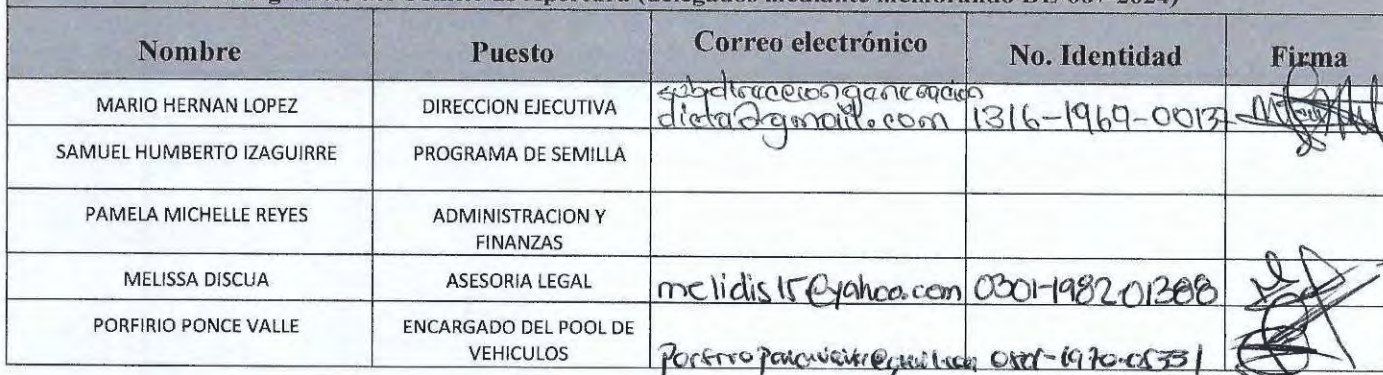 Nombre Puesto Correo electrónico No. Identidad Firma
MARIO HERNAN LOPEZ DIRECCION EJECUTIVA dicta@gmail.com 1316-1969-00137
SAMUEL HUMBERTO IZAGUIRRE PROGRAMA DE SEMILLA
PAMELA MICHELLE REYES ADMINISTRACION Y
FINANZAS
MELISSA DISCUA ASESORIA LEGAL melidis15@yahoo.com 0301-1982-01388
PORFIRIO PONCE VALLE ENCARGADO DEL POOL DE
VEHICULOS